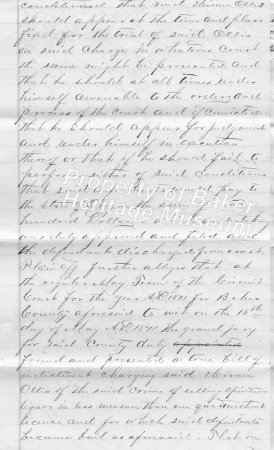 conditioned that said Hiram Ollis
should appear at the time and place
fixed for the trial of said Ollis
on said charge in whatever court
the same might be prosecuted and
that he should at all times render
himself amenable to the orders and
process of the Court and if convicted
that he should appear for judgment
and render himself in execution
thereof or that if he should fail to
perform either of said conditions
that said pay to
the State the sum of
hundred
was duly approved and filed and
the defendant discharged from arrest.
Plaintiff further alleges that at
the regular May Term of the Circuit
Court for the year AD 1891 for Baker
County aforesaid to wit on the 15th
day of May AD 1891 the grand jury
for said County duly appointed
found and presented a true bill of
indictment charging said Hiram
Ollis of the said crime of selling spiritous
liquor in less measure than one quart without
license and for which said defendants
became bail as aforesaid. That on
Property of Baker
Heritage Museum